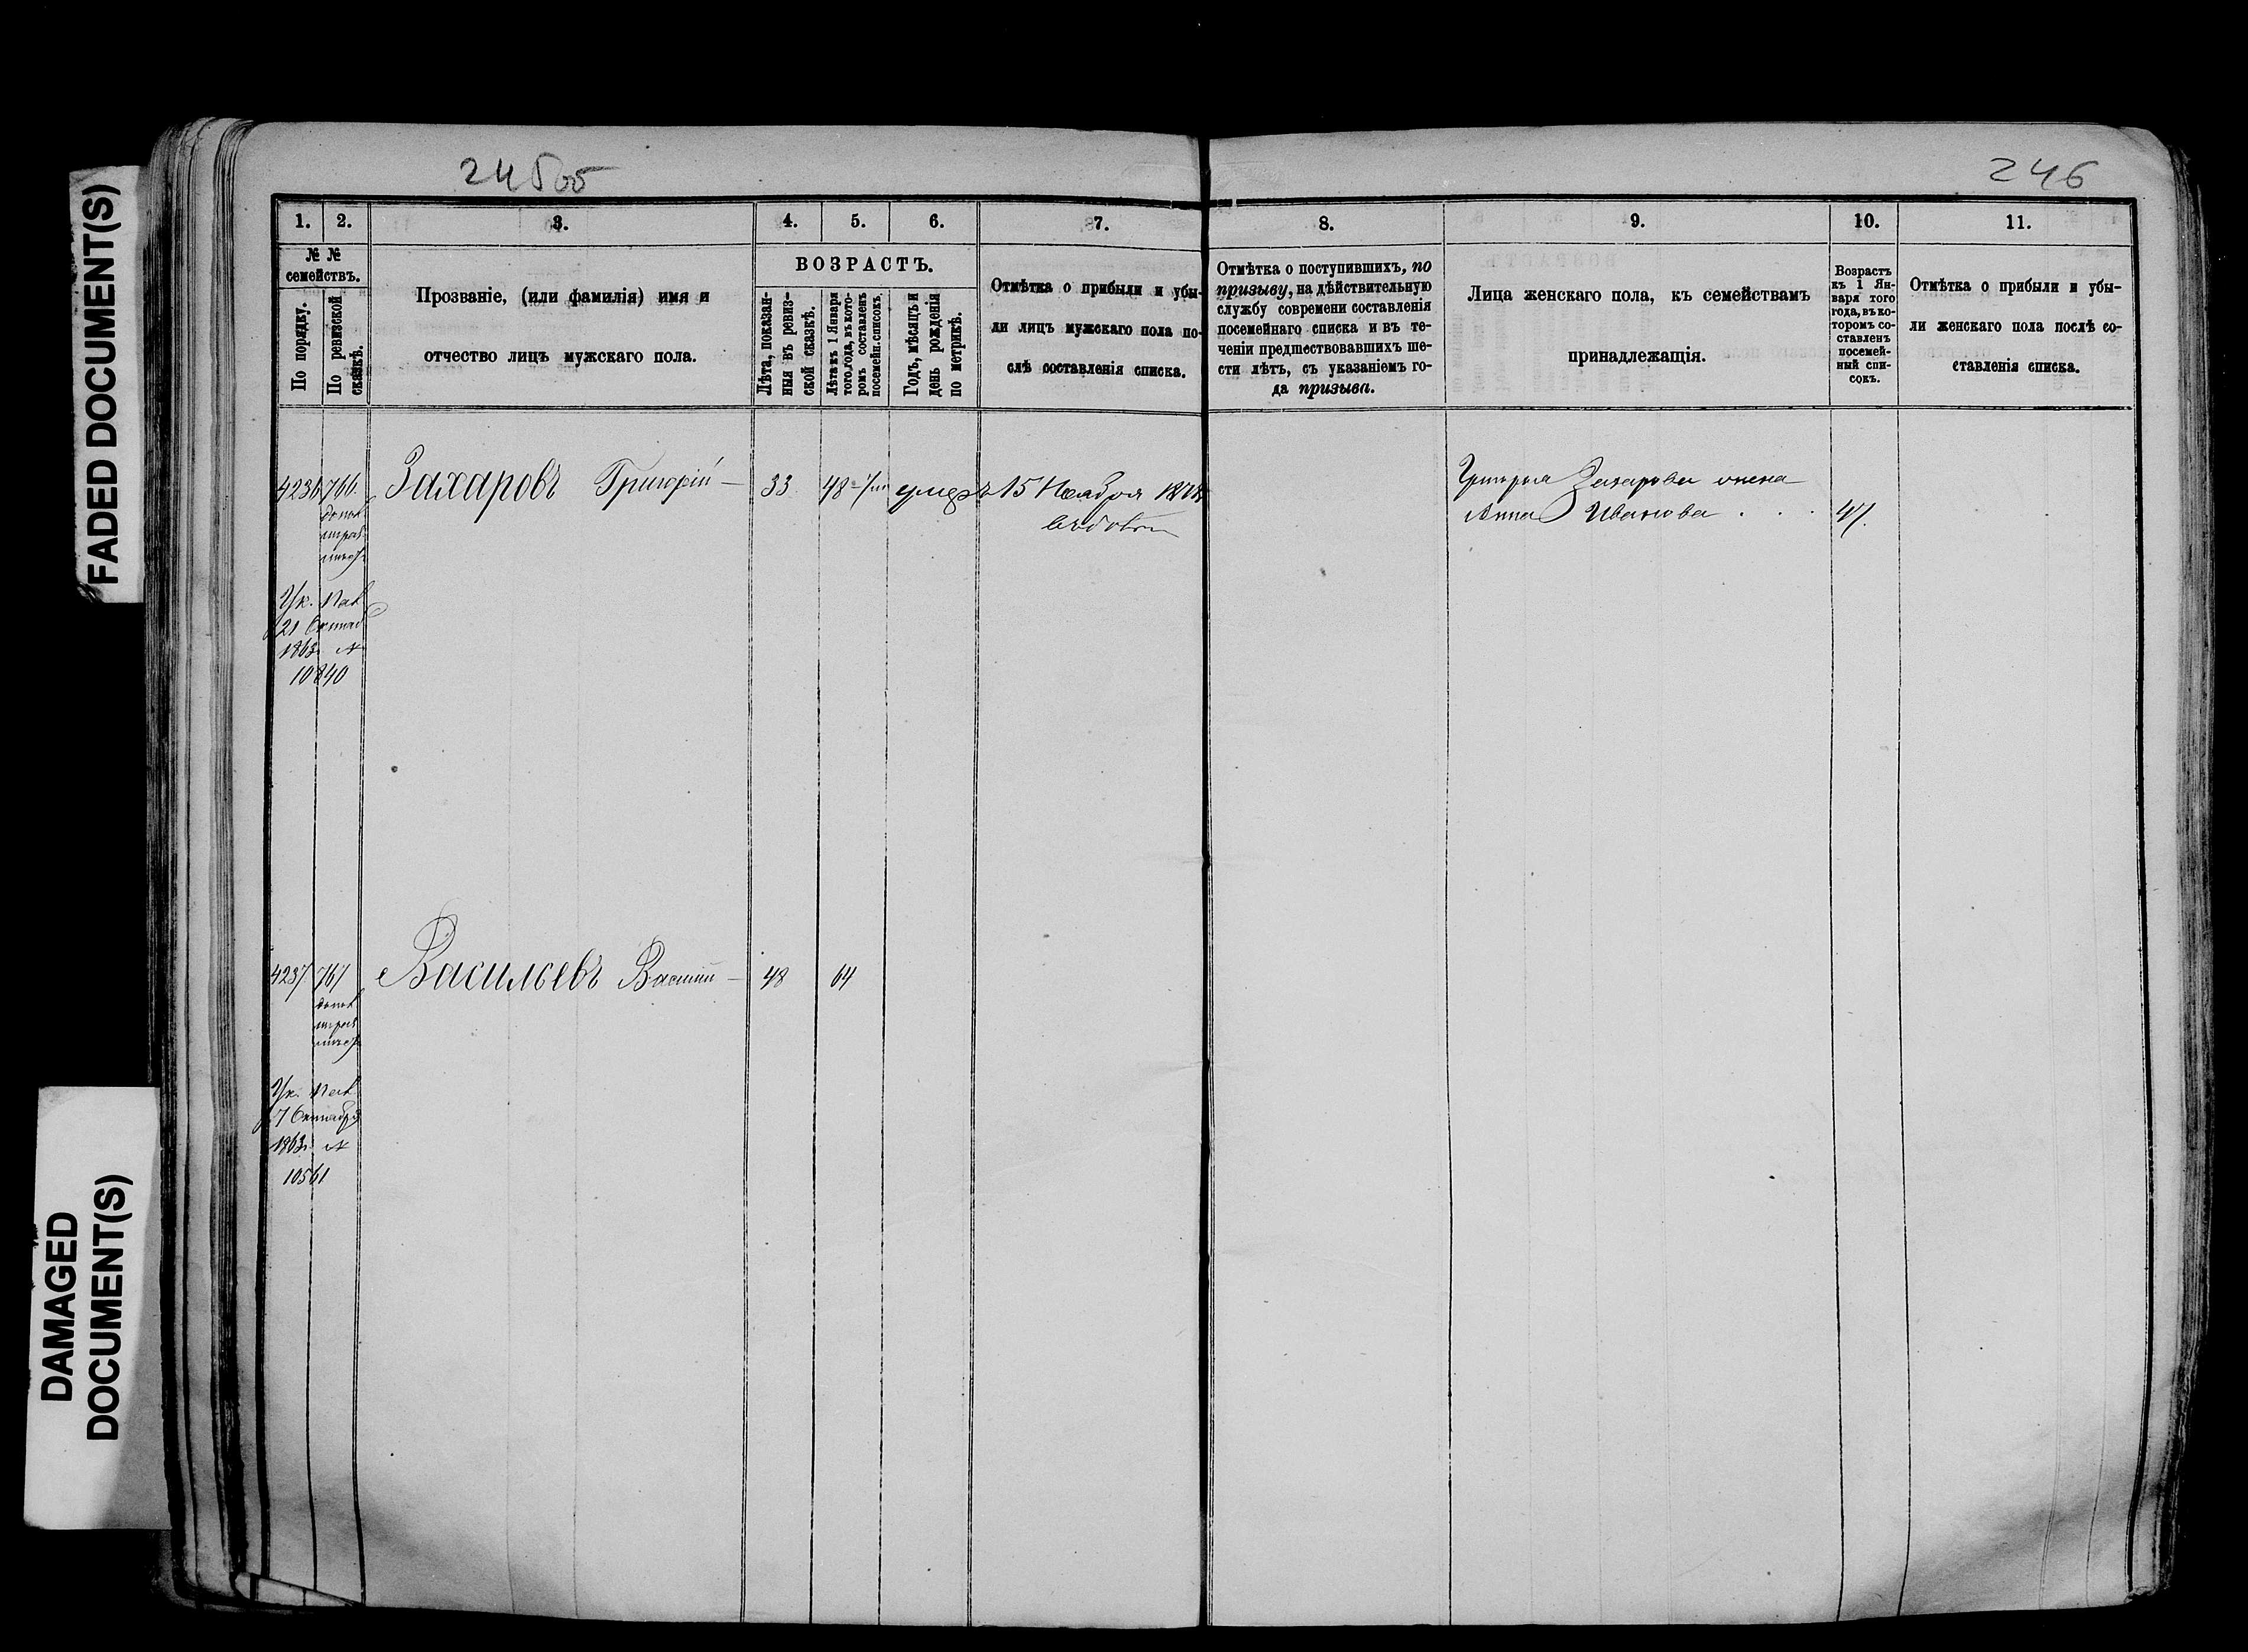 FADED DOCUMENT(S)
DAMAGED
DOCUMENT(S)
246
1.
2.
3.
4.
5.
6.
7.
8.
9.
10.
11.
№ №
семействъ.
По порядку.
По ревизской
сказкѣ.
Прозваніе, (или фамилія) имя и
отчество лицъ мужскаго пола.
ВОЗРАСТЪ.
Лѣта, показан-
ныя въ ревиз-
ской сказкѣ.
Лѣта къ 1 Января
того года, въ кото-
ромъ составленъ
посемейн. списокъ.
Годъ, мѣсяцъ и
день рожденія
по метрикѣ.
Отмѣтка о прибыли и убы-
ли лицъ мужскаго пола по-
слѣ составленія списка.
Отмѣтка о поступившихъ, по
призыву, на дѣйствительную
службу современи составленія
посемейнаго списка и въ те-
ченіи предшествовавшихъ ше-
сти лѣтъ, съ указаніемъ го-
да призыва.
Лица женскаго пола, къ семействамъ
принадлежащія.
Возрастъ
къ 1 Ян-
варя того
года, въ ко-
торомъ со-
ставленъ
посемей-
ный спи-
сокъ.
Отмѣтка о прибыли и убы-
ли женскаго пола послѣ со-
ставленія списка.
4236 766. Захаровъ Григорій — 33 48 умеръ 15 Ноября
Григорья Захарова жена
Анна Иванова . . . 47.
Ук. Пал.
21 Октяб
1863 №
10840
4237 767 Васильевъ Василій — 48 64
Ук. Пал.
7 Октября
1863 №
10561